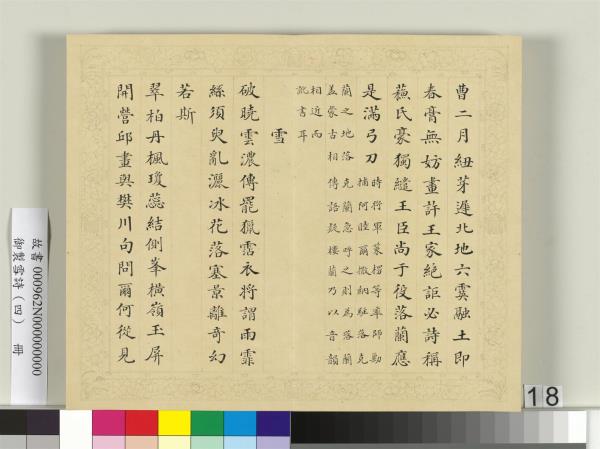 曹二月紐芽遲北地六霙融土即
春膏無妨畫許王家絶詎必詩稱
蘓氏豪獨繾王臣尚于役落蘭應
是滿弓刀
時將軍策楞等率師勦
捕阿睦爾撒納駐落克
蘭之地落克蘭急呼之則為落蘭
盖蒙古相傳語疑樓蘭乃以音韻
相近而
訛書耳
雪
破曉雲濃傳罷獵霑衣將謂雨霏
絲須臾亂灑冰花落塞景離奇幻
若斯
翠柏丹楓瓊蕊結側峯橫嶺玉屏
開營邱畫與樊川句問爾何從見
故書 000962N000000000
御製雪詩(四) 冊
18